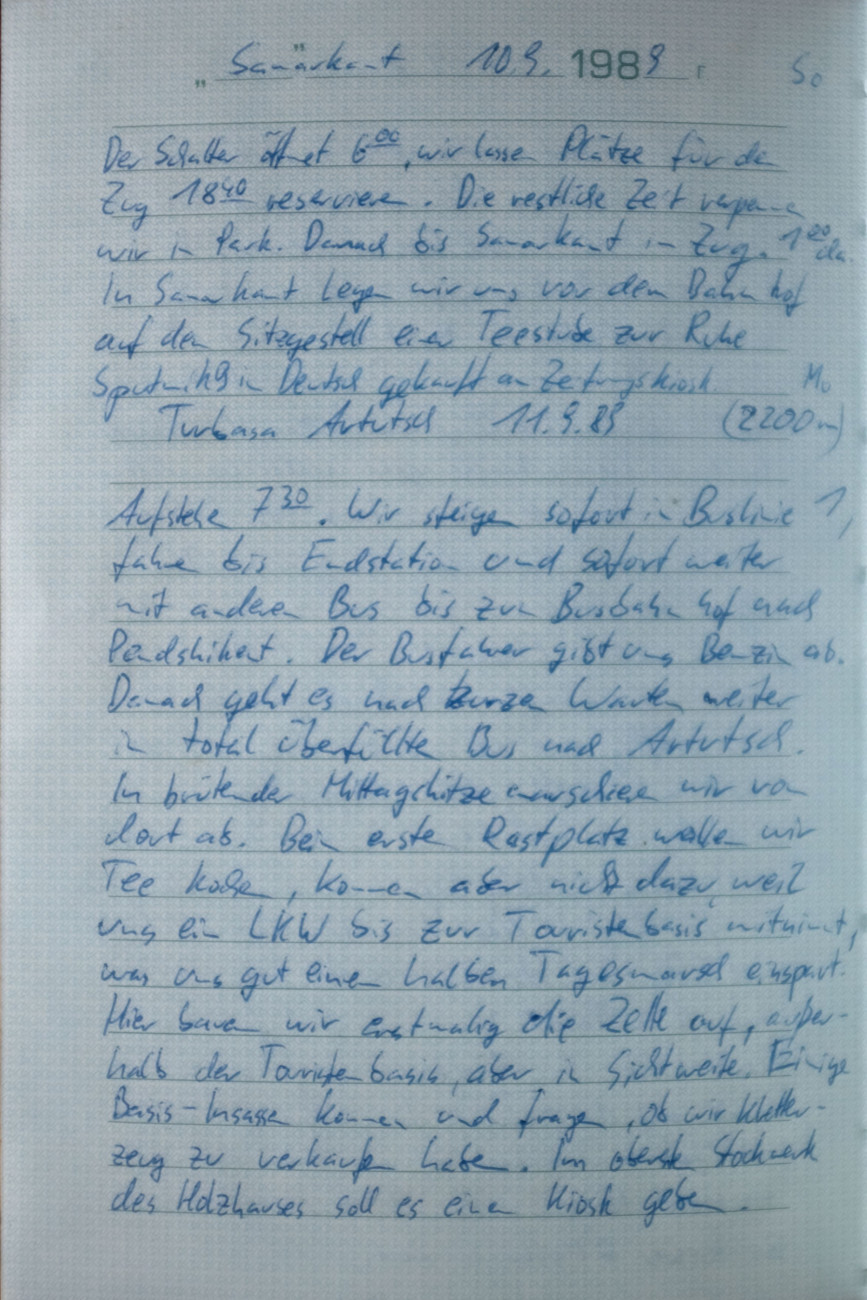 „ Samarkant " 10.9. 1989 г. So
Der Schalter öffnet 6⁰⁰, wir lassen Plätze für den
Zug 18⁴⁰ reservieren. Die restliche Zeit verpennen
wir in Park. Danach bis Samarkant in Zug. 1⁰⁰ da.
In Samarkant legen wir uns vor dem Bahnhof
auf den Sitzgestell einer Teestube zur Ruhe
Sputnik 9 in Deutsch gekauft an Zeitungskiosk. Mo
Turbasa Artutsch 11.9.89 (2200m)
Aufstehen 7³⁰. Wir steigen sofort in Buslinie 1,
fahren bis Endstation und sofort weiter
mit anderen Bus bis zum Busbahnhof nach
Pendshikent. Der Busfahrer gibt uns Benzin ab.
Danach geht es nach kurzen Warten weiter
in total überfüllten Bus nach Artutsch.
In brütender Mittagshitze marschieren wir von
dort ab. Beim ersten Rastplatz wollen wir
Tee kochen, kommen aber nicht dazu, weil
uns ein LKW bis zur Touristenbasis mitnimmt,
was uns gut einen halben Tagesmarsch einspart.
Hier bauen wir erstmalig die Zelte auf, außer-
halb der Touristenbasis, aber in Sichtweite. Einige
Basis-Insassen kommen und fragen, ob wir Kletter-
zeug zu verkaufen haben. Im obersten Stockwerk
des Holzhauses soll es einen Kiosk geben.